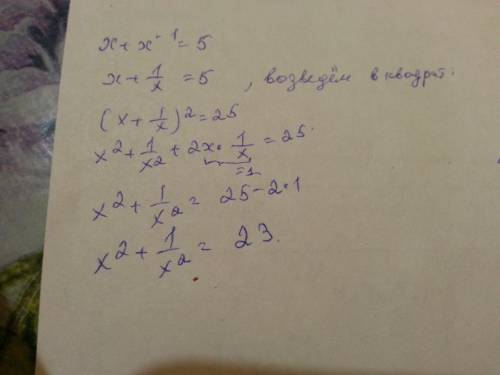 x + x⁻¹ = 5
x + 1/x = 5 , возведём в квадрат:
(x + 1/x)² = 25
x² + 1/x² + 2x · 1/x = 25
=1
x² + 1/x² = 25 - 2·1
x² + 1/x² = 23.